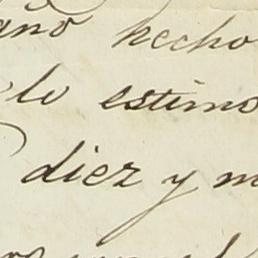 año hecho
lo estimo
diez y m